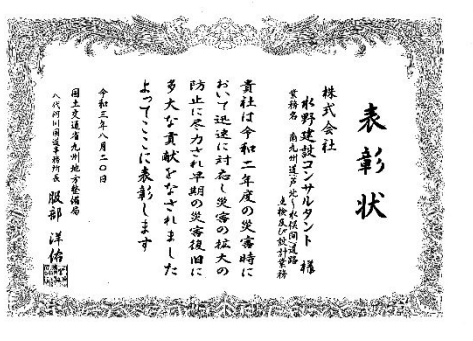 表彰状
株式会社
水野建設コンサルタント 様
業務名 南九州道戸石～水俣間道路
点検及び設計業務
貴社は令和二年度の災害時に
おいて迅速に対応し災害の拡大の
防止に尽力され早期の災害復旧に
多大な貢献をなされました
よってここに表彰します
令和三年八月二〇日
国土交通省九州地方整備局
八代河川国道事務所長 服部 洋佑